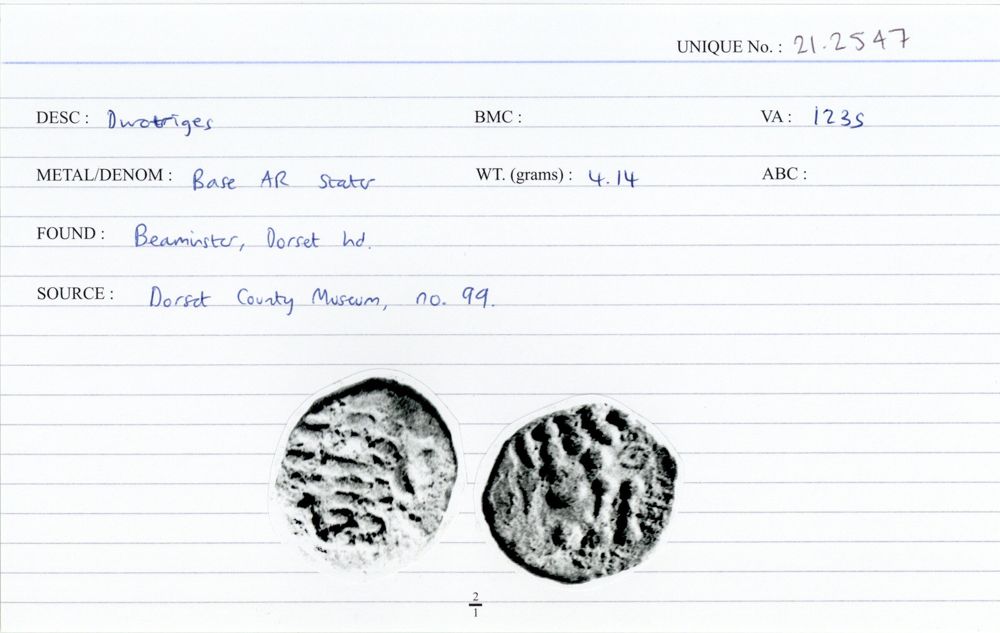 UNIQUE No. : 21.2547
DESC : Durotriges BMC : VA : 1235
METAL/DENOM : Base AR stater WT. (grams) : 4.14 ABC :
FOUND : Beaminster, Dorset hd.
SOURCE : Dorset County Museum, no. 99.
2
1